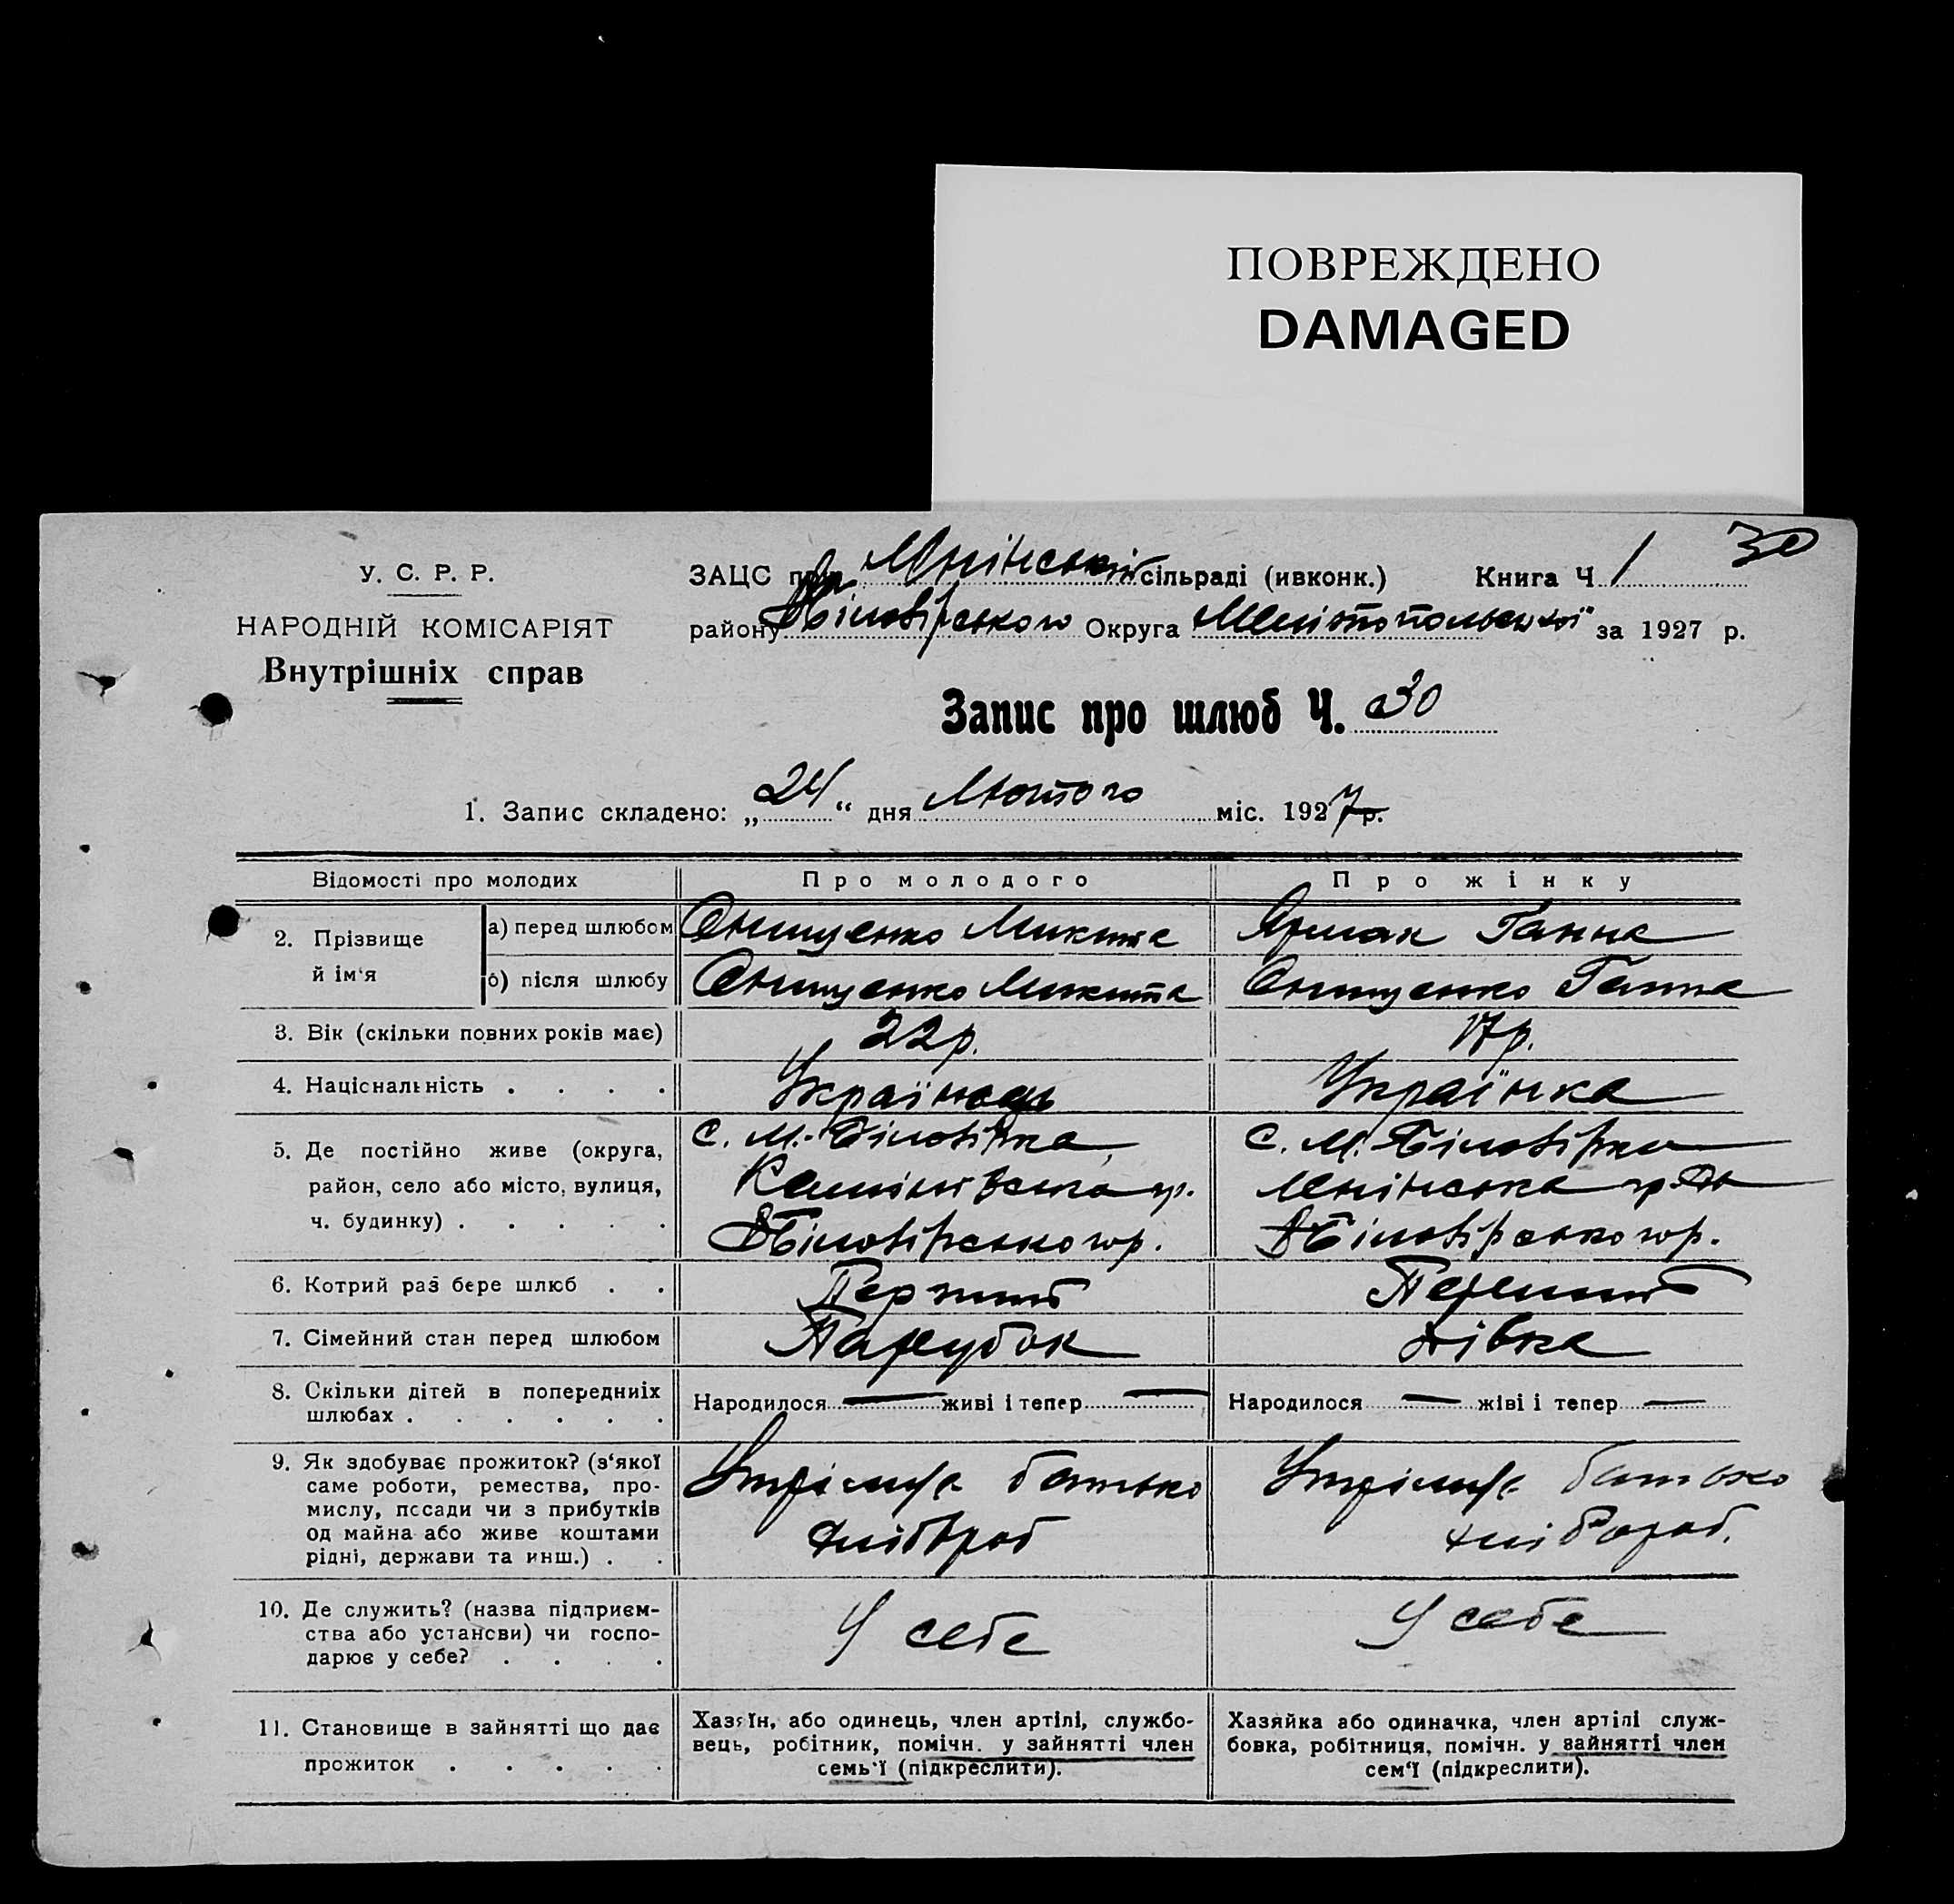 ПОВРЕЖДЕНО
DAMAGED
30
У. С. Р. Р.
НАРОДНІЙ КОМІСАРІЯТ
Внутрішніх справ
ЗАЦС при Мнінській сільраді (ивконк.) Книга Ч. 1
району В Біловірського Округа Мелітопольської за 1927 р.
Запис про шлюб Ч. 30
1. Запис складено: „24“ дня Лютого міс. 1927 р.
Відомості про молодих Про молодого Про жінку
2. Прізвище й ім‘я
а) перед шлюбом Онищенко Микита Ярмак Ганна
б) після шлюбу Онищенко Микита Онищенко Ганна
3. Вік (скільки повних років має) 22р. 17р.
4. Національність . . . . Українець Українка
5. Де постійно живе (округа, район, село або місто, вулиця, ч. будинку) . . . . .
с. М.-Біловірка,
гр.
В Біловірського р.
с. М. Біловірка
Мнінська гр.
В Біловірського р.
6. Котрий раз бере шлюб . . Перший Перший
7. Сімейний стан перед шлюбом Парубок Дівка
8. Скільки дітей в попередниіх шлюбах . . . . . . Народилося — живі і тепер — Народилося — жіві і тепер —
9. Як здобуває прожиток? (з‘якої
саме роботи, ремества, про-
мислу, посади чи з прибутків
од майна або живе коштами
рідні, держави та инш.) . .
Утріммує батько
хліброб
Утріммує батько
хлібороб.
10. Де служить? (назва підприєм-
ства або установи) чи госпо-
дарює у себе? . . . .
У себе
У себе
11. Становище в зайнятті що дає
прожиток . . . . .
Хазяїн, або одинець, член артілі, службо-
вець, робітник, помічн. у зайнятті член
семь‘ї (підкреслити).
Хазяйка або одиначка, член артілі служ-
бовка, робітниця, помічн. у зайнятті член
сем‘ї (підкреслити).